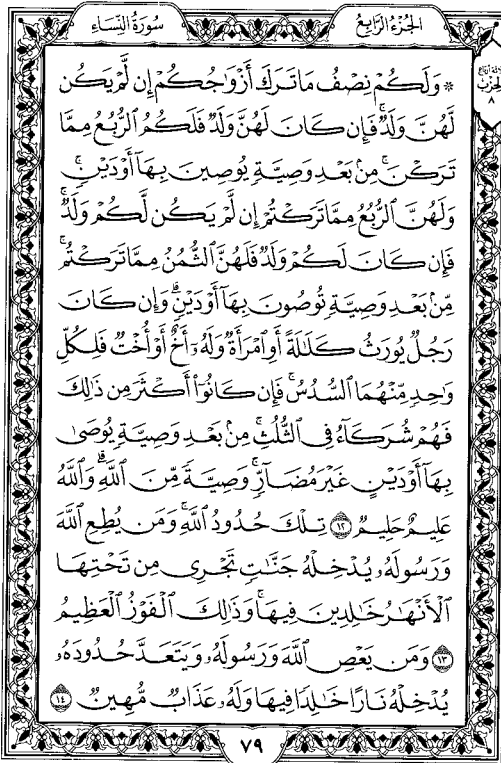 الجزء الرابع
سورة النساء
الحزب
٨
۞ وَلَكُمْ نِصْفُ مَا تَرَكَ أَزْوَٰجُكُمْ إِن لَّمْ يَكُن
لَّهُنَّ وَلَدٌ ۚ فَإِن كَانَ لَهُنَّ وَلَدٌ فَلَكُمُ ٱلرُّبُعُ مِمَّا
تَرَكْنَ ۚ مِنۢ بَعْدِ وَصِيَّةٍ يُوصِينَ بِهَآ أَوْ دَيْنٍ ۚ
وَلَهُنَّ ٱلرُّبُعُ مِمَّا تَرَكْتُمْ إِن لَّمْ يَكُن لَّكُمْ وَلَدٌ ۚ
فَإِن كَانَ لَكُمْ وَلَدٌ فَلَهُنَّ ٱلثُّمُنُ مِمَّا تَرَكْتُم ۚ
مِّنۢ بَعْدِ وَصِيَّةٍ تُوصُونَ بِهَآ أَوْ دَيْنٍ ۗ وَإِن كَانَ
رَجُلٌ يُورَثُ كَلَٰلَةً أَوِ ٱمْرَأَةٌ وَلَهُۥٓ أَخٌ أَوْ أُخْتٌ فَلِكُلِّ
وَٰحِدٍ مِّنْهُمَا ٱلسُّدُسُ ۚ فَإِن كَانُوٓا۟ أَكْثَرَ مِن ذَٰلِكَ
فَهُمْ شُرَكَآءُ فِى ٱلثُّلُثِ ۚ مِنۢ بَعْدِ وَصِيَّةٍ يُوصَىٰ
بِهَآ أَوْ دَيْنٍ غَيْرَ مُضَآرٍّ ۚ وَصِيَّةً مِّنَ ٱللَّهِ ۗ وَٱللَّهُ
عَلِيمٌ حَلِيمٌ ١٢ تِلْكَ حُدُودُ ٱللَّهِ ۚ وَمَن يُطِعِ ٱللَّهَ
وَرَسُولَهُۥ يُدْخِلْهُ جَنَّٰتٍ تَجْرِى مِن تَحْتِهَا
ٱلْأَنْهَٰرُ خَٰلِدِينَ فِيهَا ۚ وَذَٰلِكَ ٱلْفَوْزُ ٱلْعَظِيمُ
١٣ وَمَن يَعْصِ ٱللَّهَ وَرَسُولَهُۥ وَيَتَعَدَّ حُدُودَهُۥ
يُدْخِلْهُ نَارًا خَٰلِدًا فِيهَا وَلَهُۥ عَذَابٌ مُّهِينٌ ١٤
٧٩